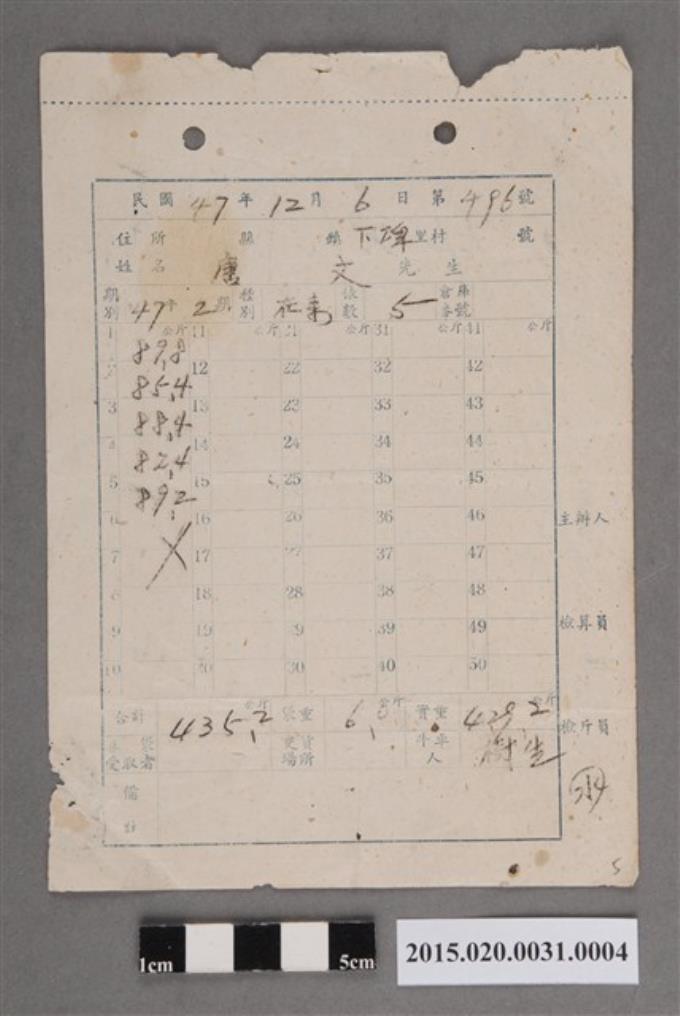 民國 47 年 12 月 6 日 第 496 號
住所 縣 鎮 下埤 里村 號
姓名 唐 文 先生
期別 47年 2期 種別 在來 袋數 5 倉庫番號
1 公斤 11 公斤 21 公斤 31 公斤 41 公斤
89,8
2 12 22 32 42
85,4
3 13 23 33 43
88,4
4 14 24 34 44
82,4
5 15 25 35 45
89,2
6 16 26 36 46 主辦人
7 17 27 37 47
8 18 28 38 48
9 19 29 39 49 檢算員
10 20 30 40 50
合計 435,2 公斤 袋重 6,0 公斤 實重 429,2 公斤 檢斤員
袋受取者 交貨場所 牛車人 樹生
備
5
1cm 5cm
2015.020.0031.0004